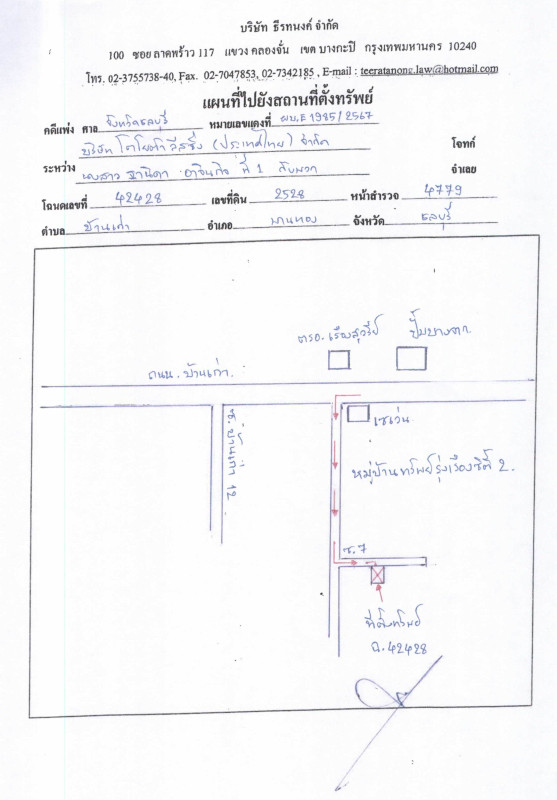 บริษัท ธีรทนงค์ จำกัด
100 ซอย ลาดพร้าว 117 แขวง คลองจั่น เขต บางกะปิ กรุงเทพมหานคร 10240
โทร. 02-3755738-40, Fax. 02-7047853, 02-7342185 , E-mail : teeratanong.law@hotmail.com
แผนที่ไปยังสถานที่ตั้งทรัพย์
คดีแพ่ง ศาล จังหวัดชลบุรี หมายเลขแดงที่ ผบ.E 1985/2567
บริษัท โตโยต้า ลีสซิ่ง (ประเทศไทย) จำกัด โจทก์
ระหว่าง
นางสาว ฐานิดา อาจินกิจ ที่ 1 กับพวก จำเลย
โฉนดเลขที่ 42428 เลขที่ดิน 2528 หน้าสำรวจ 4779
ตำบล บ้านเก่า อำเภอ พานทอง จังหวัด ชลบุรี
ตรอ.เรืองสุวรีย์ ปั๊มบางจาก
ถนน.บ้านเก่า.
เซเว่น
ซ.บ้านเก่า 12
หมู่บ้านทรัพย์รุ่งเรืองซิตี้ 2.
ซ.7
ที่ตั้งทรัพย์
ฉ.42428